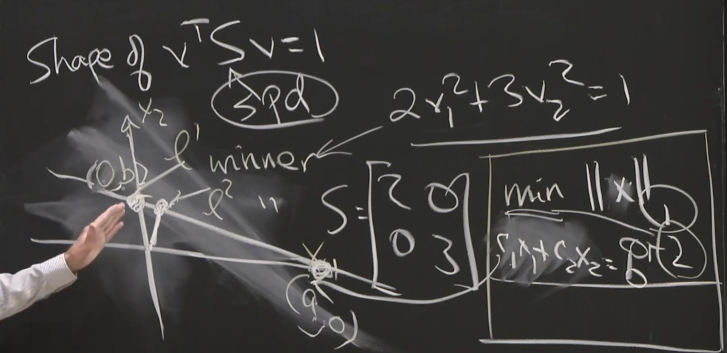 Shape of vᵀSv=1
spd
2v₁²+3v₂²=1
x₂
(0,b)
l¹ winner
l² "
S=[2 0
0 3]
min ||x||₁ or 2
c₁x₁+c₂x₂=
(a,0)